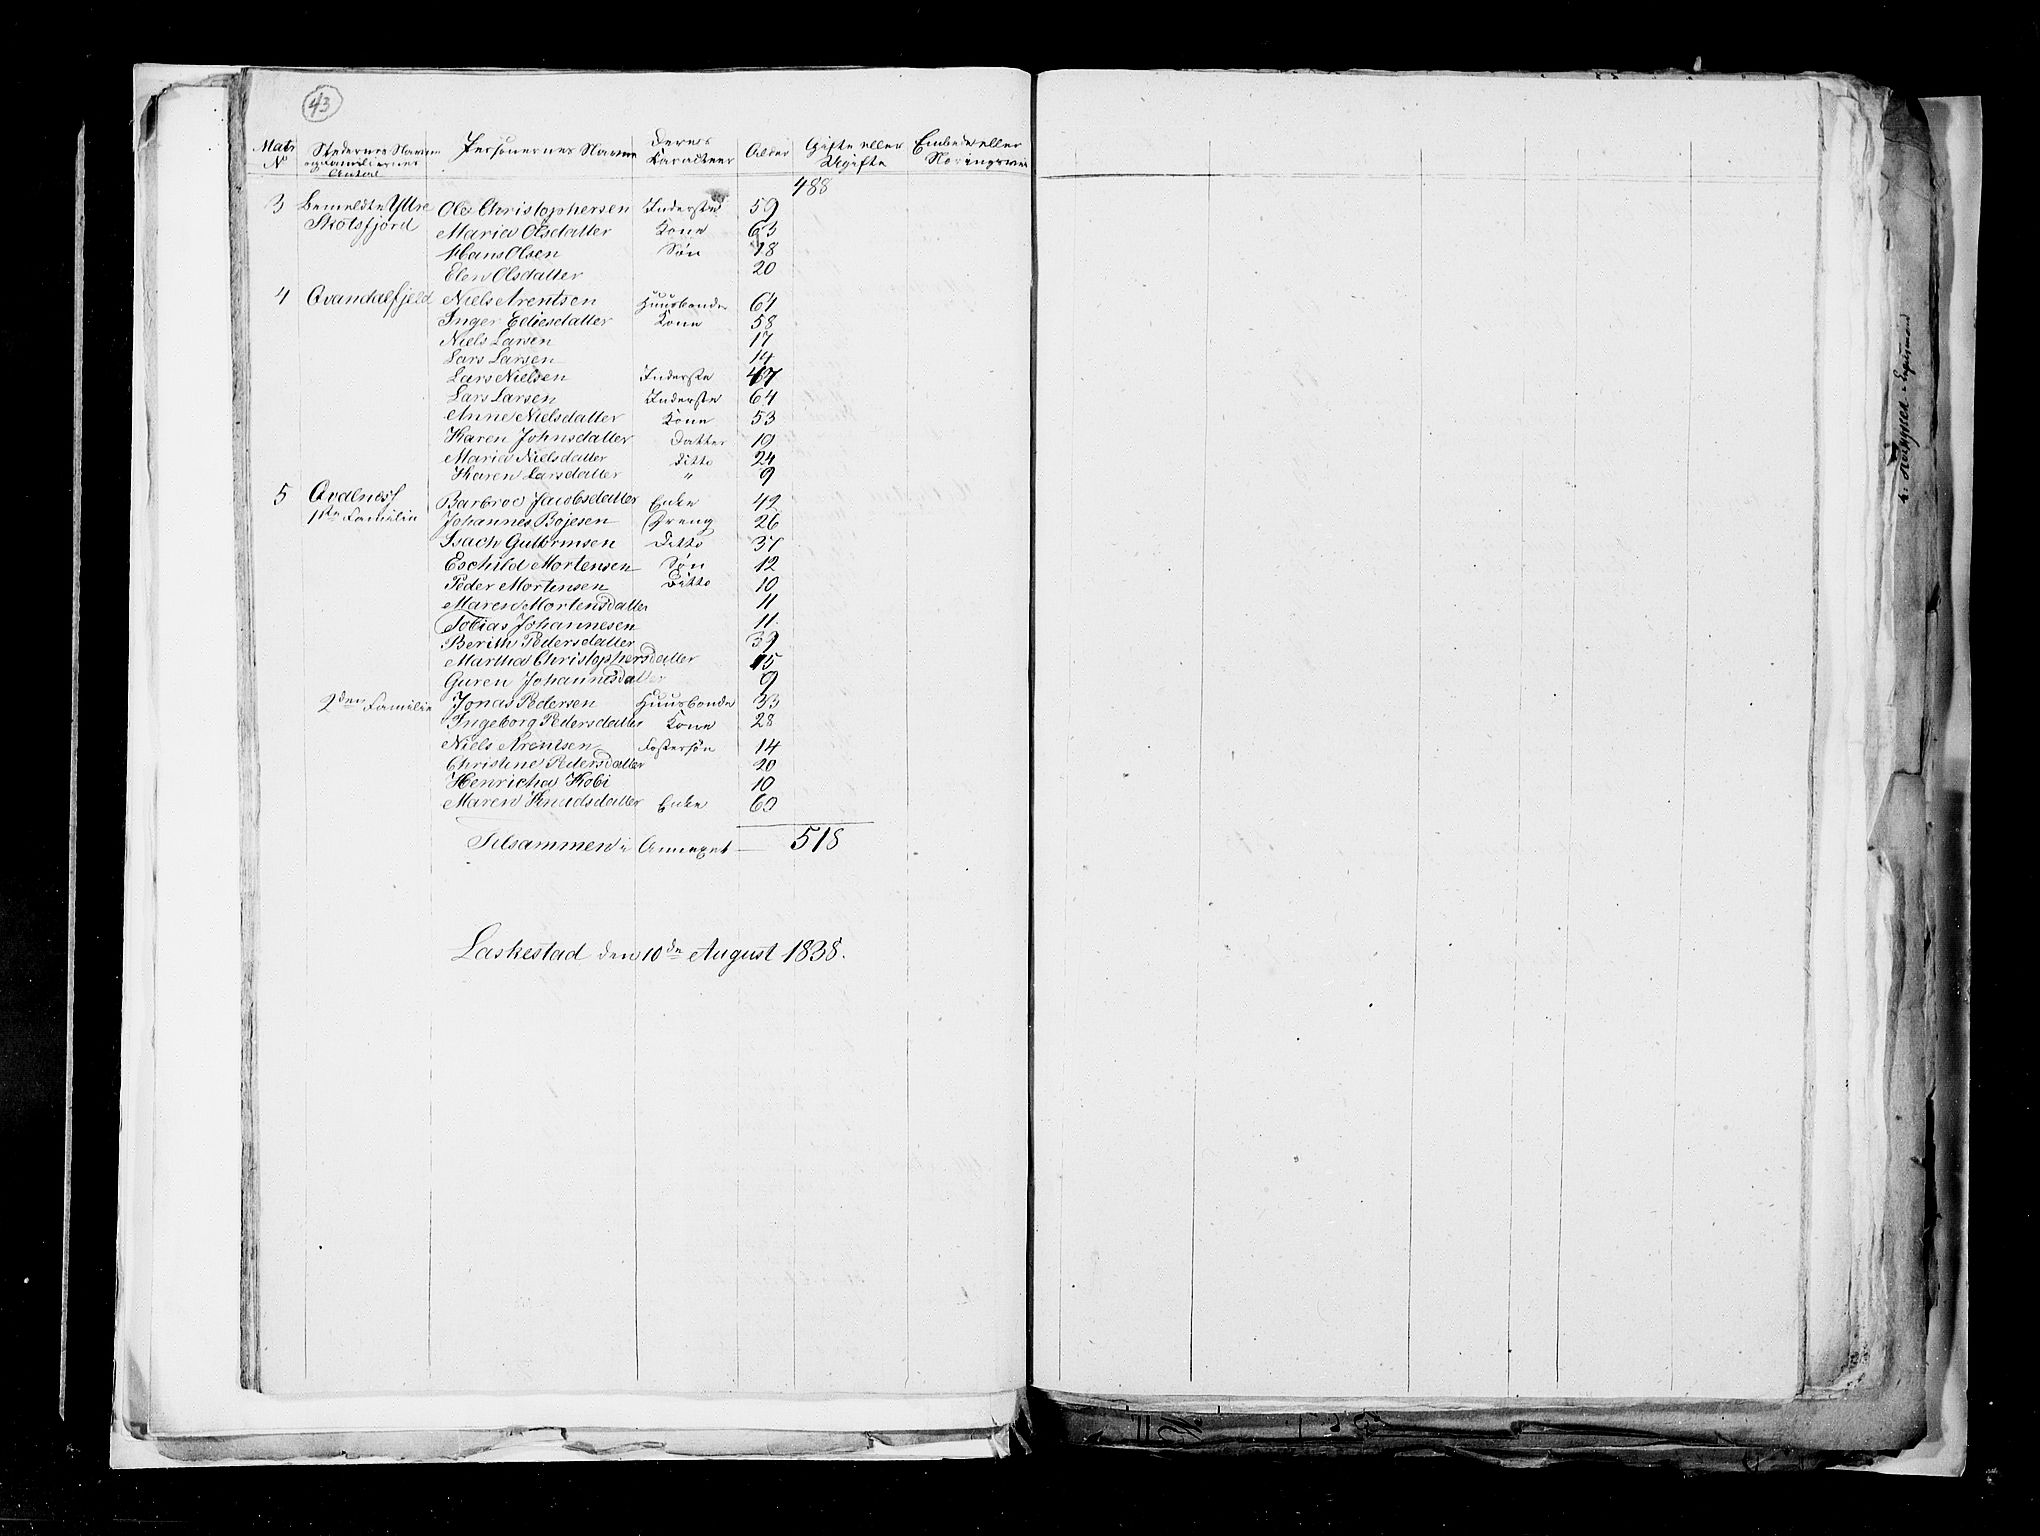 43
Matr N Stedernes Navne og Familiernes Antal Personernes Navne Deres Caracteer Alder Gifte eller Ugifte Embede eller Næringsvei
488
3 Bemeldte Yttre Ole Christophersen Inderste 59
Skotsfjord Maria Olsdatter Kone 63
Hans Olsen Søn 18
Elen Olsdatter 20
4 Qvandalfjeld Niels Arentsen Huusbonde 64
Inger Eliesdatter Kone 58
Niels Larsen 17
Lars Larsen 14
Lars Nielsen Inderste 47
Lars Larsen Inderste 64
Anne Nielsdatter Kone 53
Karen Johnsdatter Datter 19
Maria Nielsdatter Ditto 24
Karen Larsdatter " 9
5 Qvalness Barbroe Jacobsdatter Enke 42
1ste Familie Johannes Bojesen Dreng 26
Isach Guttormsen Ditto 37
Eschild Mortensen Søn 12
Peder Mortensen Ditto 10
Maren Mortensdatter 11
Tobias Johannesen 11
Berith Pedersdatter 39
Martha Christophersdatter 15
Guren Johannesdatter 9
2den Familie Jonas Pedersen Huusbonde 33
Ingeborg Pedersdatter Kone 28
Niels Arentsen Fostersøn 14
Christine Pedersdatter 20
Henricha Kobi 10
Maren Knudsdatter Enke 60
Tilsammen i Annexet — 518
Laskestad den 10de August 1838.